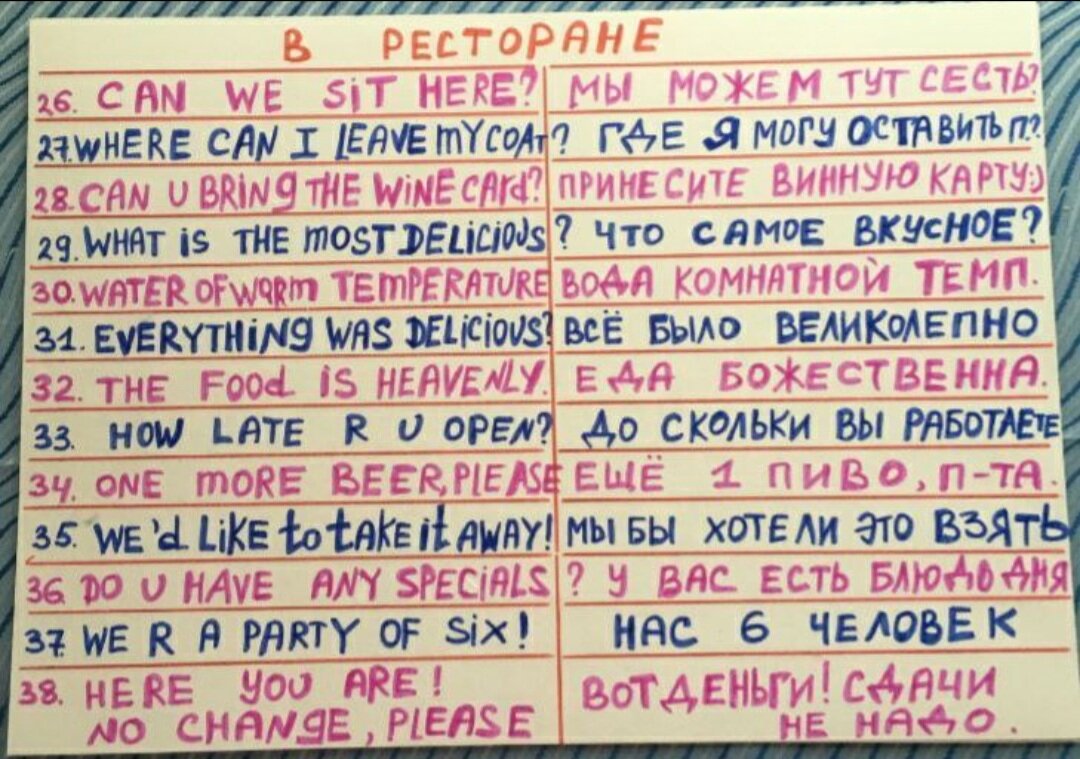 В РЕСТОРАНЕ
26. CAN WE SiT HERE? МЫ МОЖЕМ ТУТ СЕСТЬ?
27. WHERE CAN I LEAVE mY COAT? ГДЕ Я МОГУ ОСТАВИТЬ П.?
28. CAN U BRiNg THE WiNE CArd? ПРИНЕСИТЕ ВИННУЮ КАРТУ:)
29. WHAT iS THE mOST DELiCiOUs? ЧТО САМОЕ ВКУСНОЕ?
30. WATER OF WqRm TEmPERATURE ВОДА КОМНАТНОЙ ТЕМП.
31. EVERYTHiNg WAS DELiCiOUS! ВСЁ БЫЛО ВЕЛИКОЛЕПНО
32. THE Food iS HEAVENLY. ЕДА БОЖЕСТВЕННА.
33. HOW LATE R U OPEN? ДО СКОЛЬКИ ВЫ РАБОТАЕТЕ
34. ONE mORE BEER, PLEASE ЕЩЁ 1 ПИВО, П-ТА.
35. WE'd LiKE to tAKE it AWAY! МЫ БЫ ХОТЕЛИ ЭТО ВЗЯТЬ
36. DO U HAVE ANY SPECiALS? У ВАС ЕСТЬ БЛЮДО ДНЯ
37. WE R A PARTY OF SiX! НАС 6 ЧЕЛОВЕК
38. HERE YOU ARE! ВОТ ДЕНЬГИ! СДАЧИ
NO CHANgE, PLEASE НЕ НАДО.